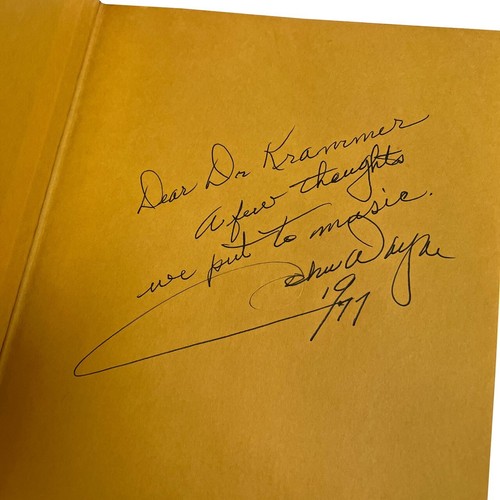 Dear Dr Krammer
A few thoughts
we put to music.
John Wayne
1977